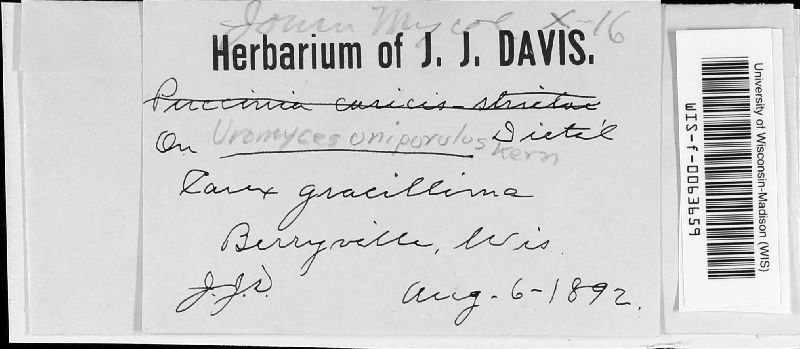 Journ Mycol X-16
Herbarium of J. J. DAVIS.
Puccinia caricis-strictae
Dietel
On Uromyces uniporulus Kern
Carex gracillima
Berryville, Wis.
J.J.D. Aug. 6-1892.
University of Wisconsin-Madison (WIS)
WIS-f-0063659